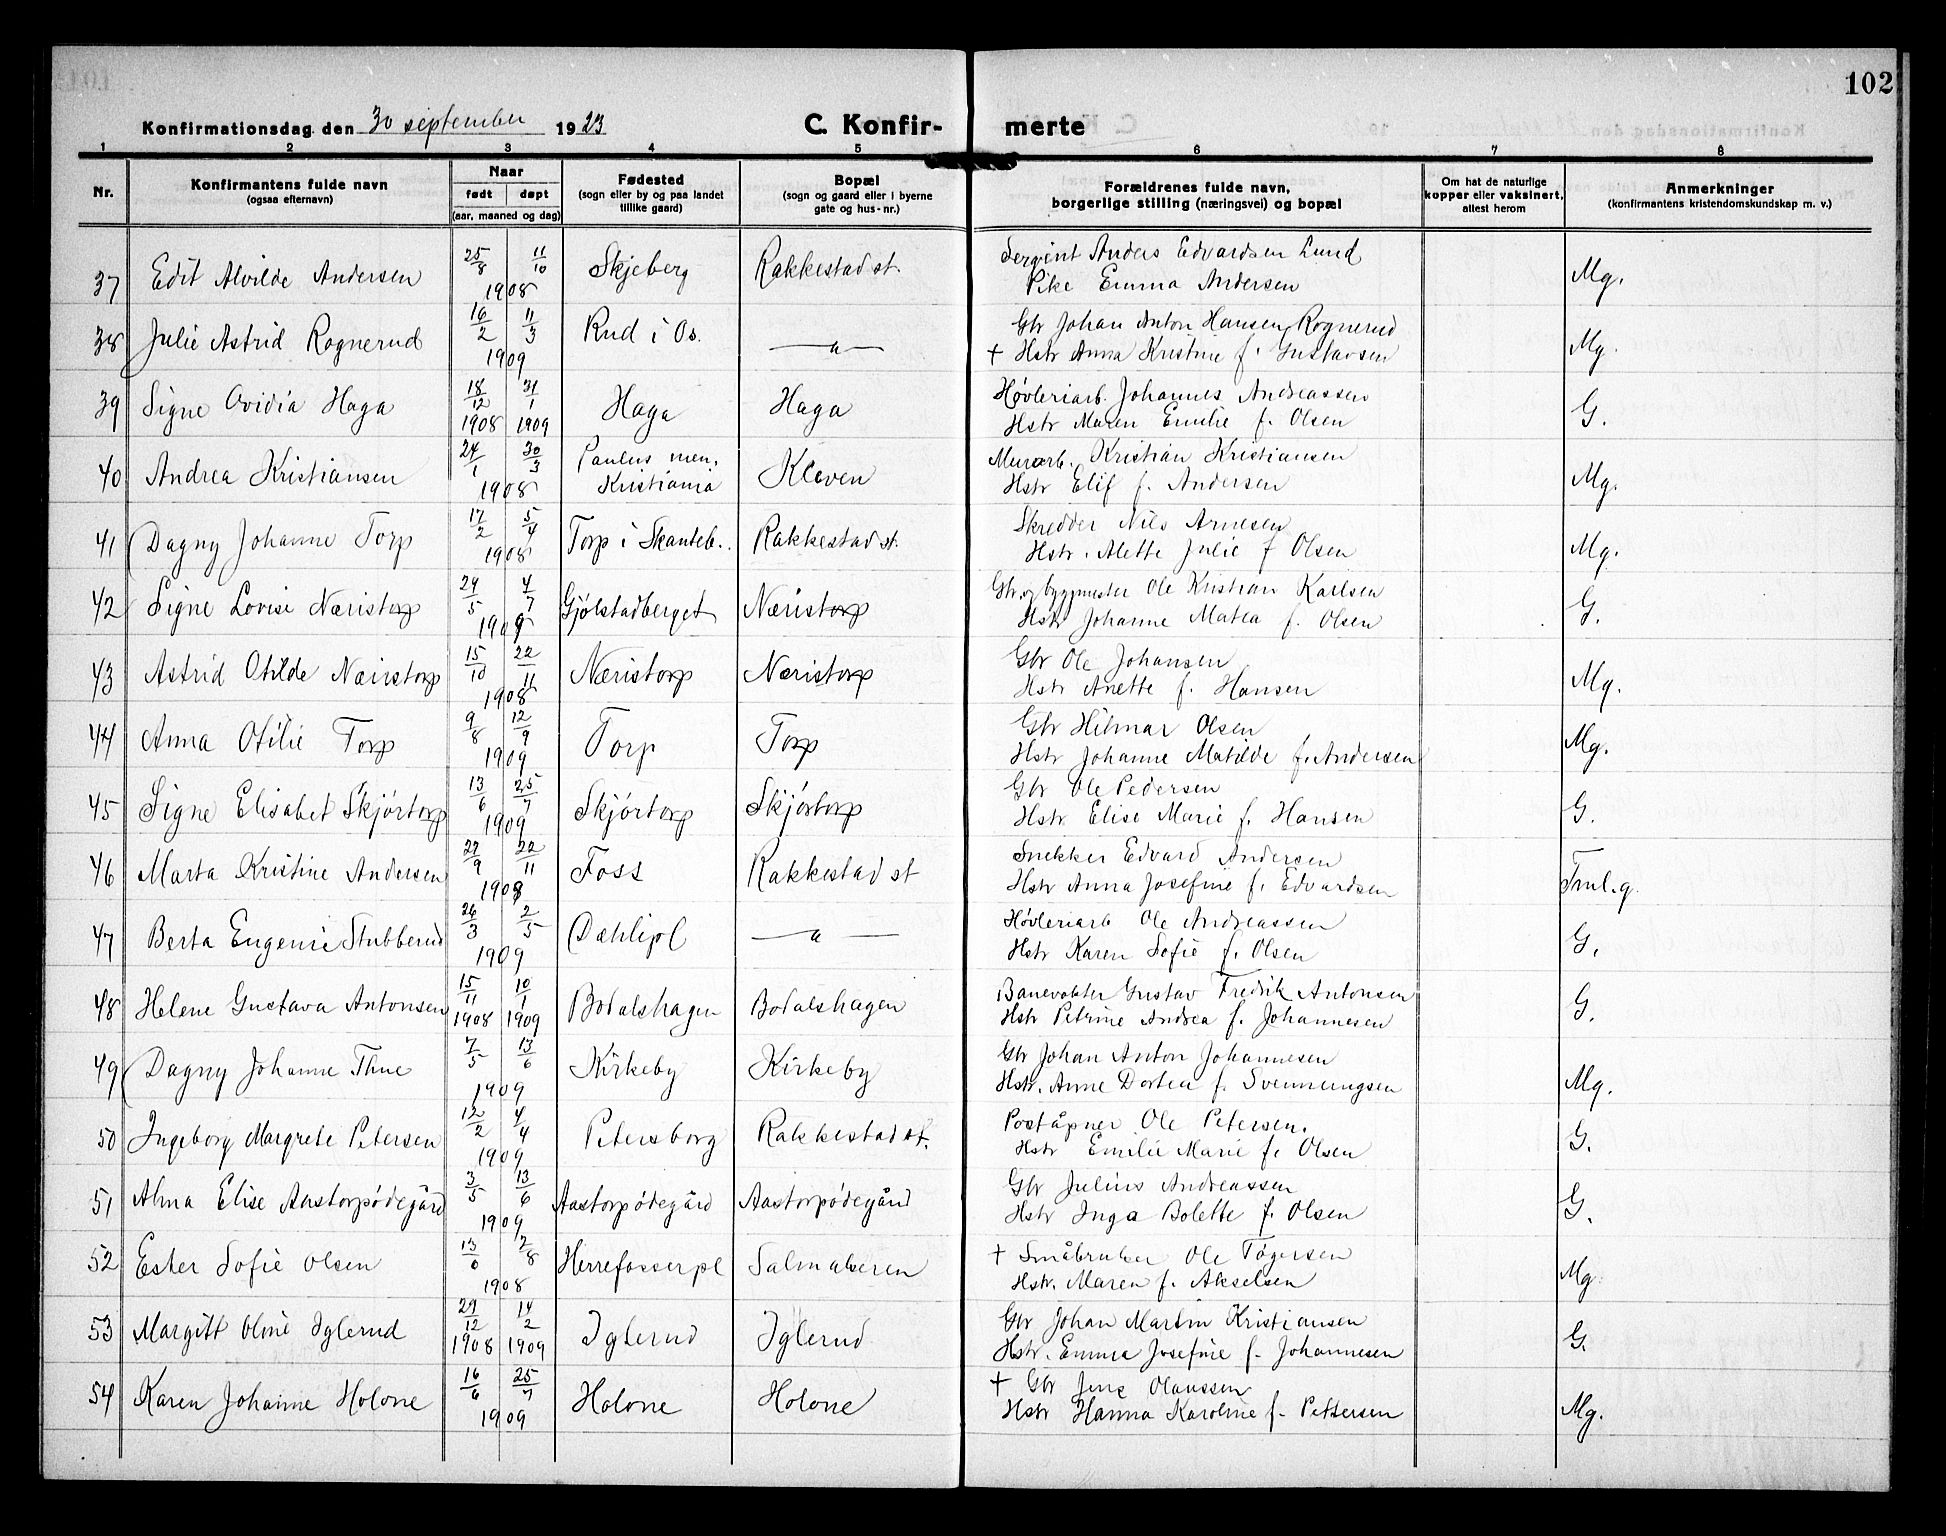 102
Konfirmationsdag den 30 september 1923 C. Konfir- merte
1 2 3 4 5 6 7 8
Nr. Konfirmantens fulde navn (ogsaa efternavn) Naar født døpt (aar, maaned og dag) Fødested (sogn eller by og paa landet tillike gaard) Bopæl (sogn og gaard eller i byerne gate og hus-nr.) Forældrenes fulde navn, borgerlige stilling (næringsvei) og bopæl Om hat de naturlige kopper eller vaksinert, attest herom Anmerkninger (konfirmantens kristendomskundskap m. v.)
37 Edit Alvilde Andersen 25/8 11/10 1908 Skjeberg Rakkestad st. Sergent Anders Edvardsen Lund
Pike Emma Andersen Mg.
38 Julie Astrid Rognerud 16/2 11/3 1909 Rud i Os. —„— Gbr Johan Anton Hansen Rognerud
† Hstr Anna Kristine f. Gustavsen Mg.
39 Signe Ovidia Haga 18/12 1908 31/1 1909 Haga Haga Høvleriarb. Johannes Andreassen
Hstr Maren Emilie f. Olsen G.
40 Andrea Kristiansen 24/1 30/3 1908 Paulus men. Kristiania Kleven Murarb. Kristian Kristiansen
Hstr Elif f. Andersen Mg.
41 Dagny Johanne Torp 17/2 5/4 1908 Torp i Skanteb.. Rakkestad st. Skredder Nils Arnesen
Hstr. Alette Julie f Olsen Mg.
42 Signe Lovise Næristorp 29/5 4/7 1909 Gjølstadberget Næristorp Gbr. og byggmester Ole Kristian Karlsen
Hstr Johanne Matea f. Olsen G.
43 Astrid Otilde Næristorp 15/10 22/11 1908 Næristorp Næristorp Gbr Ole Johansen
Hstr Anette f. Hansen Mg.
44 Anna Otilie Torp 9/8 12/9 1909 Torp Torp Gbr Hilmar Olsen
Hstr Johanne Matilde f. Andersen Mg.
45 Signe Elisabet Skjørtorp 13/6 25/7 1909 Skjørtorp Skjørtorp Gbr Ole Pedersen
Hstr Elise Marie f. Hansen G.
46 Marta Kristine Andersen 27/9 22/11 1908 Foss Rakkestad st Snekker Edvard Andersen
Hstr Anna Josefine f. Edvardsen Tml. g.
47 Berta Eugenie Stubberud 26/3 2/5 1909 Dæhlipl —„— Høvleriarb Ole Andreassen
Hstr Karen Sofie f. Olsen G.
48 Helene Gustava Antonsen 15/11 1908 10/1 1909 Bodalshagen Bodalshagen Banevokter Gustav Fredrik Antonsen
Hstr Petrine Andrea f. Johannesen G.
49 Dagny Johanne Thue 7/5 13/6 1909 Kirkeby Kirkeby Gbr Johan Anton Johannesen
Hstr. Anne Dortea f. Svenneungsen Mg.
50 Ingeborg Margrete Petersen 12/2 4/4 1909 Petersborg Rakkestad st. Poståpner Ole Petersen.
Hstr Emilie Marie f. Olsen G.
51 Alma Elise Aastorpødegård 3/5 13/6 1909 Aastorpødegård Aastorpødegård Gbr Julius Andreassen
Hstr Inga Bolette f. Olsen G.
52 Ester Sofie Olsen 13/6 2/8 1908 Herrefosserpl † Småbruker Ole Tøgersen
Hstr. Maren f. Akselsen Mg
53 Margitt Oline Iglerud 29/12 1908 14/2 1909 Iglerud Iglerud Gbr Johan Martin Kristiansen
Hstr. Emma Josefine f. Johannesen G.
54 Karen Johanne Holone 16/6 25/7 1909 Holone Holone † Gbr Jens Olaussen
Hstr Hanna Karoline f. Pettersen Mg.